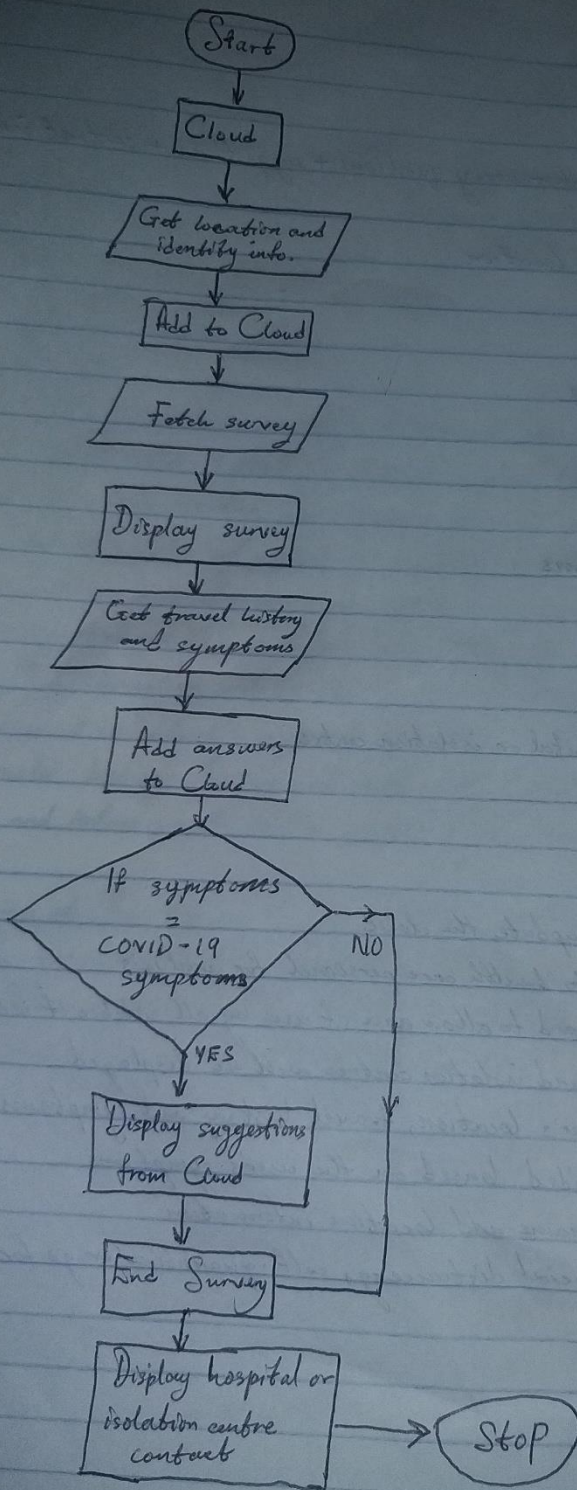 Start
Cloud
Get location and
identity info.
Add to Cloud
Fetch survey
Display survey
Get travel history
and symptoms
Add answers
to Cloud
If symptoms
=
COVID-19
symptoms
NO
YES
Display suggestions
from Cloud
End Survey
Display hospital or
isolation centre
contact
Stop